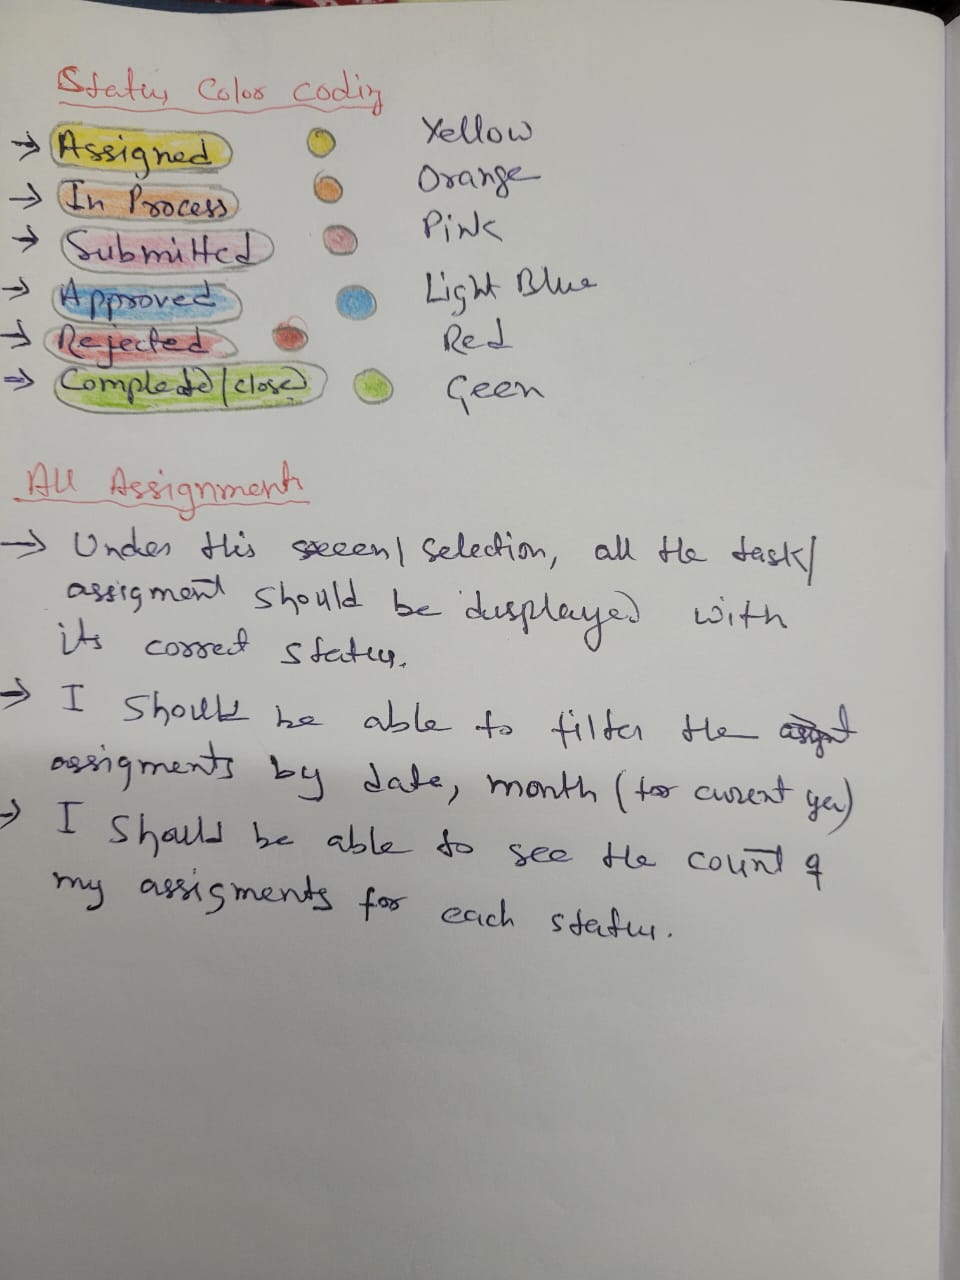 Status Color coding
→ Assigned Yellow
→ In Process Orange
→ Submitted Pink
→ Approved Light Blue
→ Rejected Red
→ Completed/closed Geen
All Assignments
→ Under this screen/ selection, all the task/
assigment should be displayed with
its correct status.
→ I should be able to filter the
assigments by date, month (for current year)
→ I should be able to see the count of
my assigments for each status.